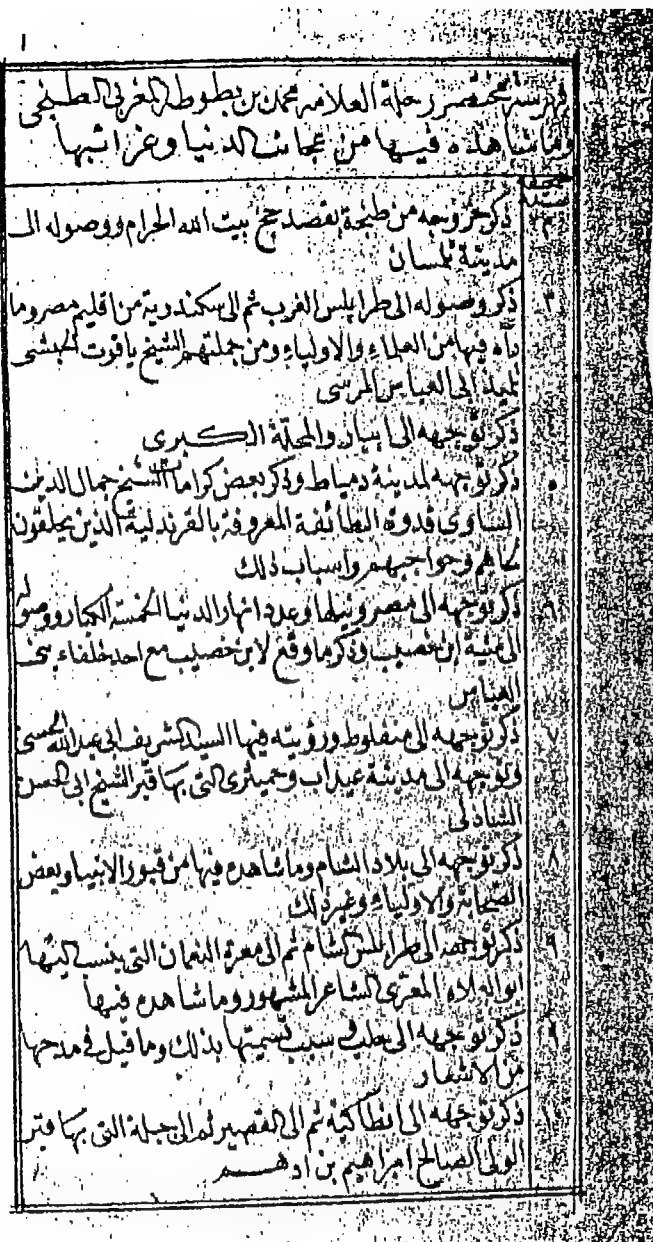 ١
فهرسة مختصر رحلة العلامه محمد بن بطوطه المغربي الطنجي
وما شاهده فيها من عجائب الدنيا وغرائبها
صحيفة
٢ ذكر خروجه من طنجة بقصد حج بيت الله الحرام ووصوله الى
مدينة تلمسان
٣ ذكر وصوله الى طرابلس الغرب ثم الى سكندرية من اقليم مصر وما
رآه فيها من العلماء والاولياء ومن جملتهم الشيخ ياقوت الحبشى
تلميذ ابى العباس المرسى
ذكر توجهه الى ابيار والمحلة الكبرى
٥ ذكر توجهه لمدينة دمياط وذكر بعض كرامات الشيخ جمال الدين
الساوى قدوة الطائفة المعروفة بالقرندلية الذين يحلقون
لحاهم وحواجبهم واسباب ذلك
٦ ذكر توجهه الى مصر ونيلها وعدد انهار الدنيا الخمسة الكبار ووصوله
الى منية ابن خصيب وذكر ما وقع لابن خصيب مع احد خلفاء بنى
العباس
٧ ذكر توجهه الى منفلوط ورؤيته فيها السيد الشريف ابى عبد الله الحسنى
وتوجهه الى مدينة عيذاب وحميثرى التى بها قبر الشيخ ابى الحسن
الشاذلى
٨ ذكر توجهه الى بلاد الشام وما شاهده فيها من قبور الانبيا وبعض
الصحابة والاولياء وغير ذلك
٩ ذكر توجهه الى طرابلس الشام ثم الى معرة النعمان التى ينسب اليها
ابو العلاء المعرى الشاعر المشهور وما شاهده فيها
ذكر توجهه الى حلب فى سبب تسميتها بذلك وما قيل فى مدحها
من الاشعار
ذكر توجهه الى انطاكية ثم الى القصير ثم الى جبلة التى بها قبر
الولى الصالح ابراهيم بن ادهم